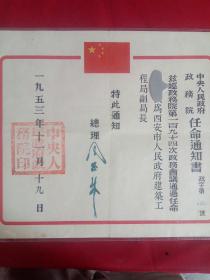 中央人民政府
政務院
任命通知書
政字第 號
茲經政務院第一百九十四次政務會議通過任命
為西安市人民政府建築工
程局副局長
特此通知
總理 周恩來
一九五三年十一月十九日
中央人民政府政務院印